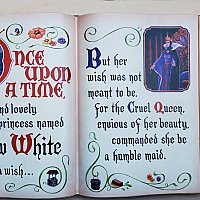 Once
upon
a time,
nd lovely
princess named
w White
a wish...
But her
wish was not
meant to be.
For the Cruel Queen,
envious of her beauty,
commanded she be
a humble maid.